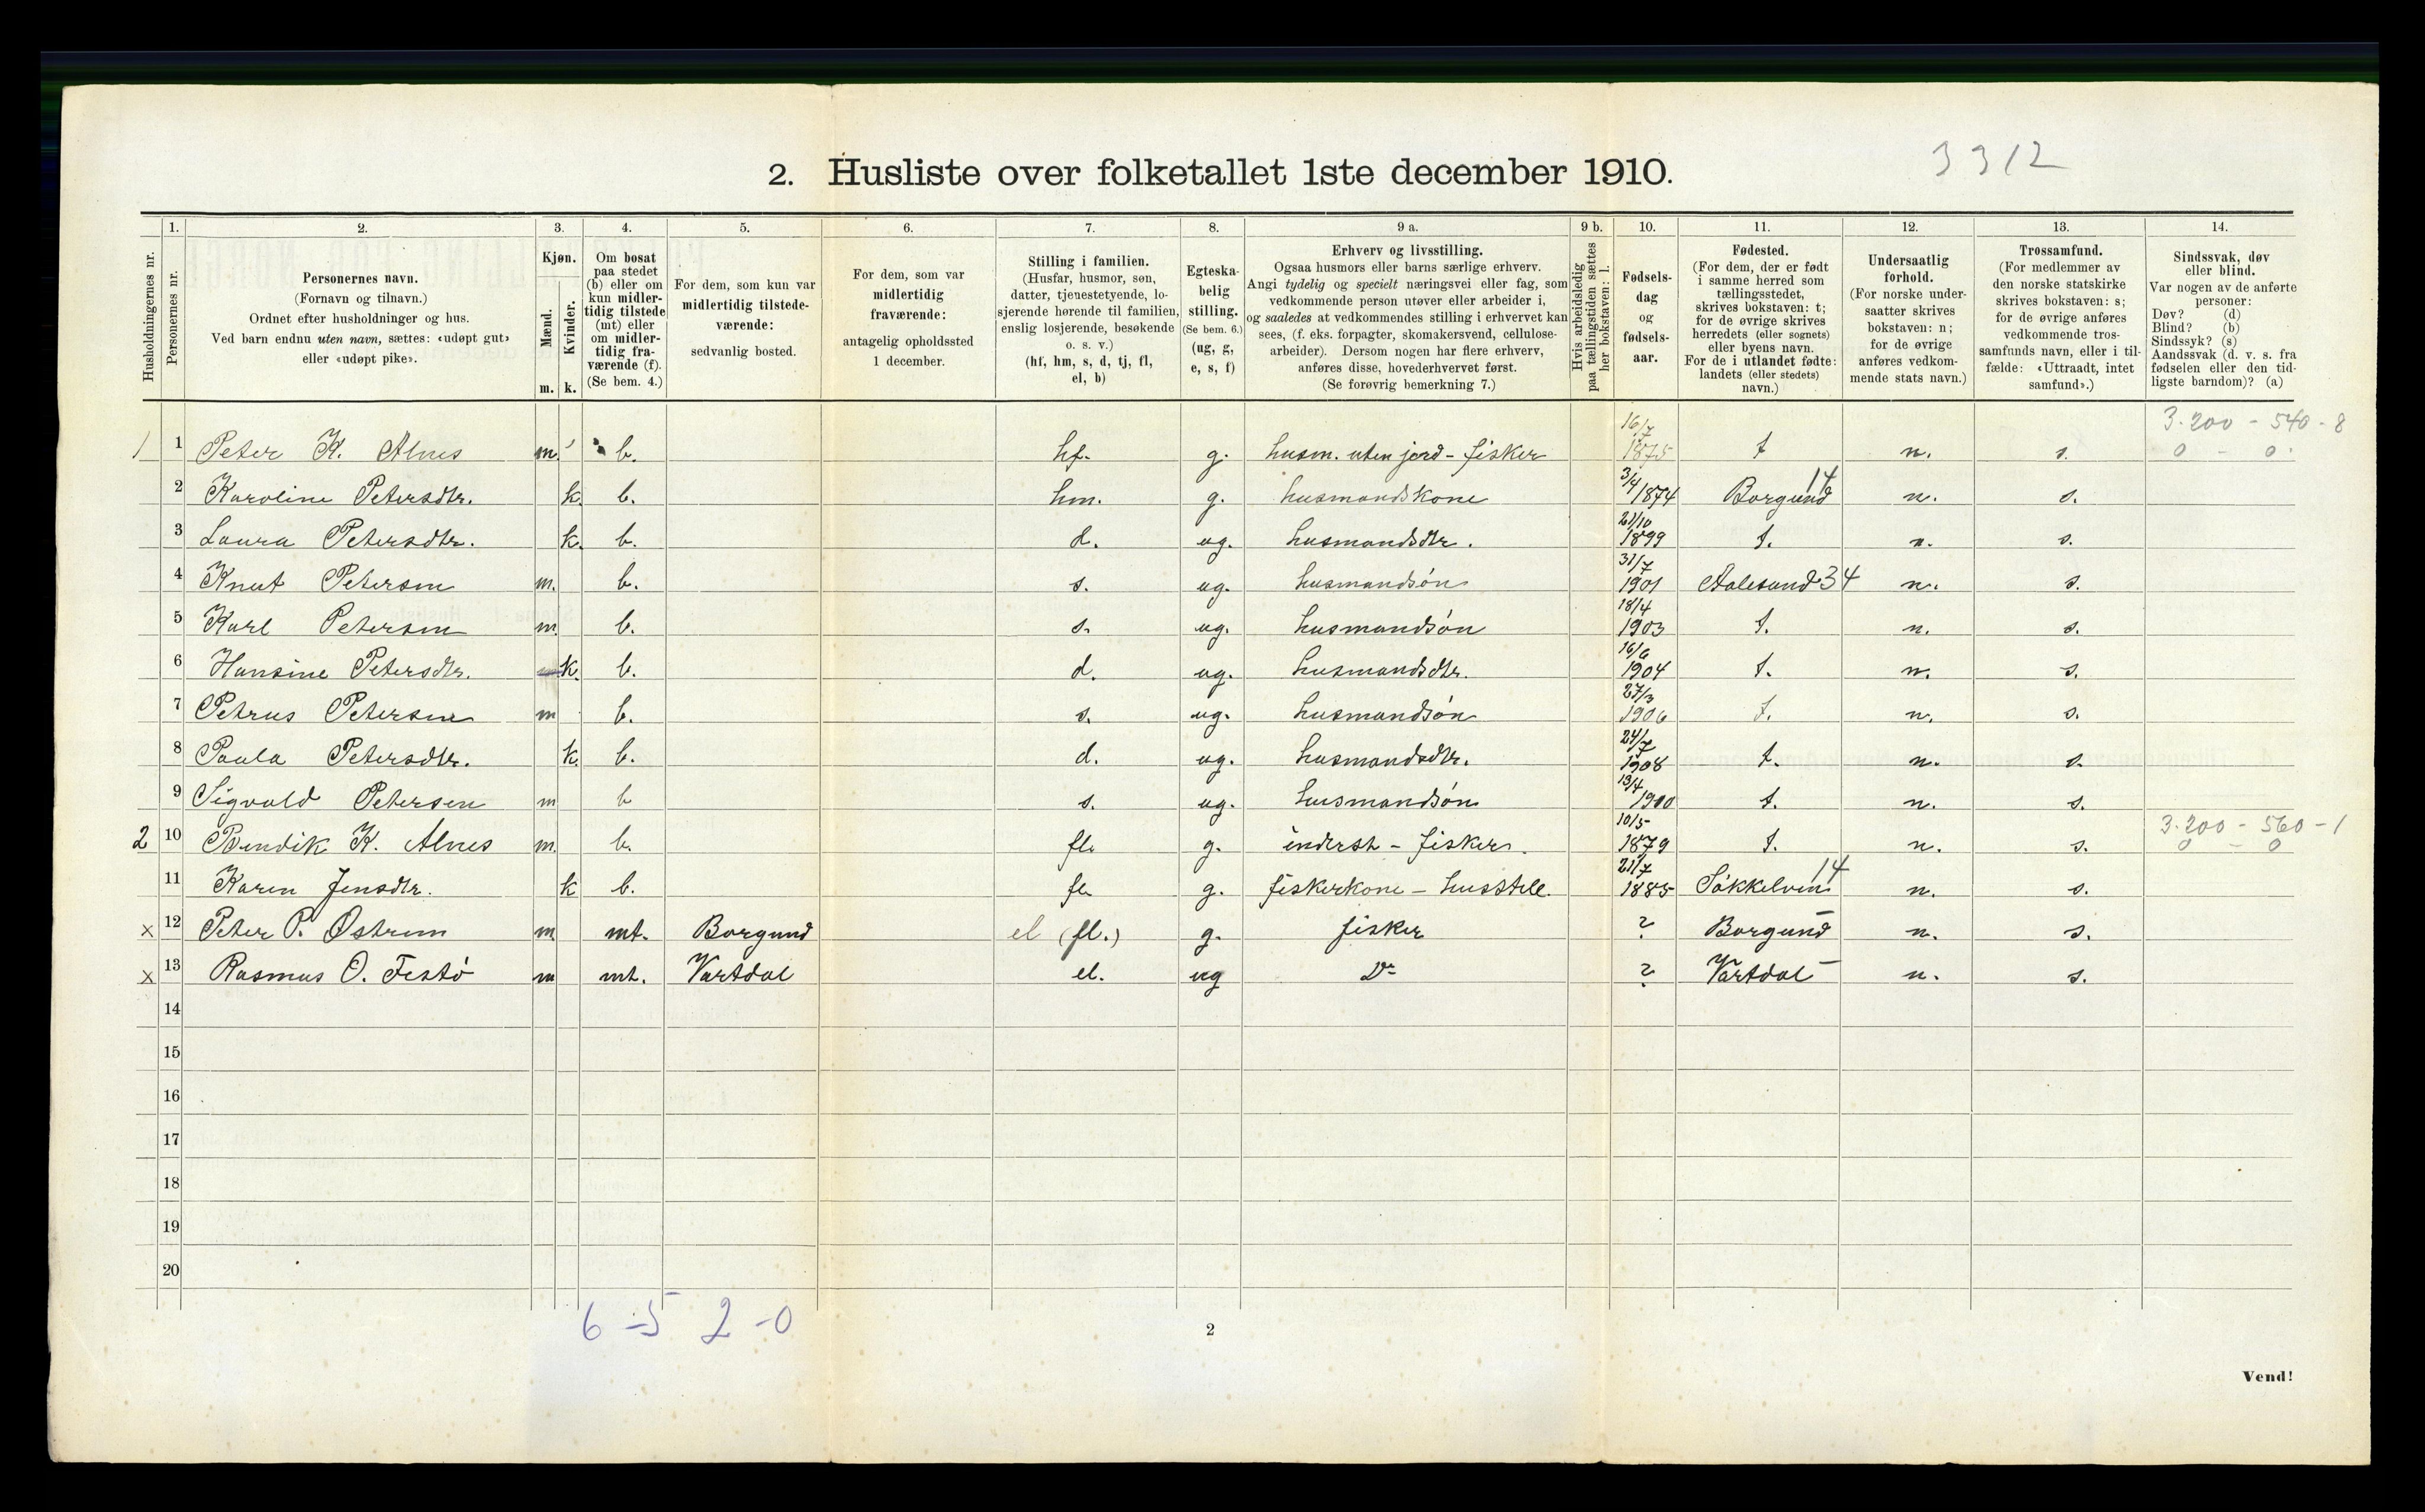 3312
2. Husliste over folketallet 1ste december 1910.
Husholdningernes nr.
1. Personernes nr.
2. Personernes navn. (Fornavn og tilnavn.) Ordnet efter husholdninger og hus. Ved barn endnu uten navn, sættes: «udøpt gut» eller «udøpt pike».
3. Kjøn. Mænd. m. Kvinder. k.
4. Om bosat paa stedet (b) eller om kun midlertidig tilstede (mt) eller om midlertidig fraværende (f). (Se bem. 4.)
5. For dem, som kun var midlertidig tilstedeværende: sedvanlig bosted.
6. For dem, som var midlertidig fraværende: antagelig opholdssted 1 december.
7. Stilling i familien. (Husfar, husmor, søn, datter, tjenestetyende, losjerende hørende til familien, enslig losjerende, besøkende o. s. v.) (hf, hm, s, d, tj, fl, el, b)
8. Egteskabelig stilling. (Se bem. 6.) (ug, g, e, s, f)
9 a. Erhverv og livsstilling. Ogsaa husmors eller barns særlige erhverv. Angi tydelig og specielt næringsvei eller fag, som vedkommende person utøver eller arbeider i, og saaledes at vedkommendes stilling i erhvervet kan sees, (f. eks. forpagter, skomakersvend, cellulosearbeider). Dersom nogen har flere erhverv, anføres disse, hovederhvervet først. (Se forøvrig bemerkning 7.)
9 b. Hvis arbeidsledig paa tællingstiden sættes her bokstaven: l.
10. Fødselsdag og fødselsaar.
11. Fødested. (For dem, der er født i samme herred som tællingsstedet, skrives bokstaven: t; for de øvrige skrives herredets (eller sognets) eller byens navn. For de i utlandet fødte: landets (eller stedets) navn.)
12. Undersaatlig forhold. (For norske undersaatter skrives bokstaven: n; for de øvrige anføres vedkommende stats navn.)
13. Trossamfund. (For medlemmer av den norske statskirke skrives bokstaven: s; for de øvrige anføres vedkommende trossamfunds navn, eller i tilfælde: «Uttraadt, intet samfund».)
14. Sindssvak, døv eller blind. Var nogen av de anførte personer: Døv? (d) Blind? (b) Sindssyk? (s) Aandssvak (d. v. s. fra fødselen eller den tidligste barndom)? (a)
1 1 Peter K. Alnes m. b. hf. g. husm. uten jord - fisker 16/7 1875 t n. s. 3.200 - 540 - 8 0 - 0.
2 Karoline Petersdtr. k. b. hm. g. husmandskone 3/4 1874 Borgund 14 n. s.
3 Laura Petersdtr. k. b. d. ug. husmandsdtr. 21/10 1899 t. n. s.
4 Knut Petersen m. b. s. ug. husmandsøn 31/7 1901 Aalesund 34 n. s.
5 Karl Petersen m. b. s. ug. husmandsøn 18/4 1903 t. n. s.
6 Hansine Petersdtr. k. b. d. ug. husmandsdtr. 16/6 1904 t. n. s.
7 Petrus Petersen m b. s. ug. husmandsøn 27/3 1906 t. n. s.
8 Paula Petersdtr. k. b. d. ug. husmandsdtr. 24/7 1908 t. n. s.
9 Sigvald Petersen m b s. ug. husmandsøn 13/4 1910 t. n. s.
2 10 Bendik K. Alnes m. b. fl. g. inderst - fisker. 10/5 1879 t. n. s. 3.200 - 560 - 1 0 - 0
11 Karen Jensdtr. k b. fl g. fiskerkone - husstell. 21/7 1885 Søkkelven 14 n. s.
x 12 Peter P. Østrem m mt. Borgund el (fl.) g. fisker ? Borgund n. s.
x 13 Rasmus O. Festø m mt. Vartdal el. ug Do ? Vartdal n. s.
14
15
16
17
18
19
20
6 - 5 2 - 0
2
Vend!